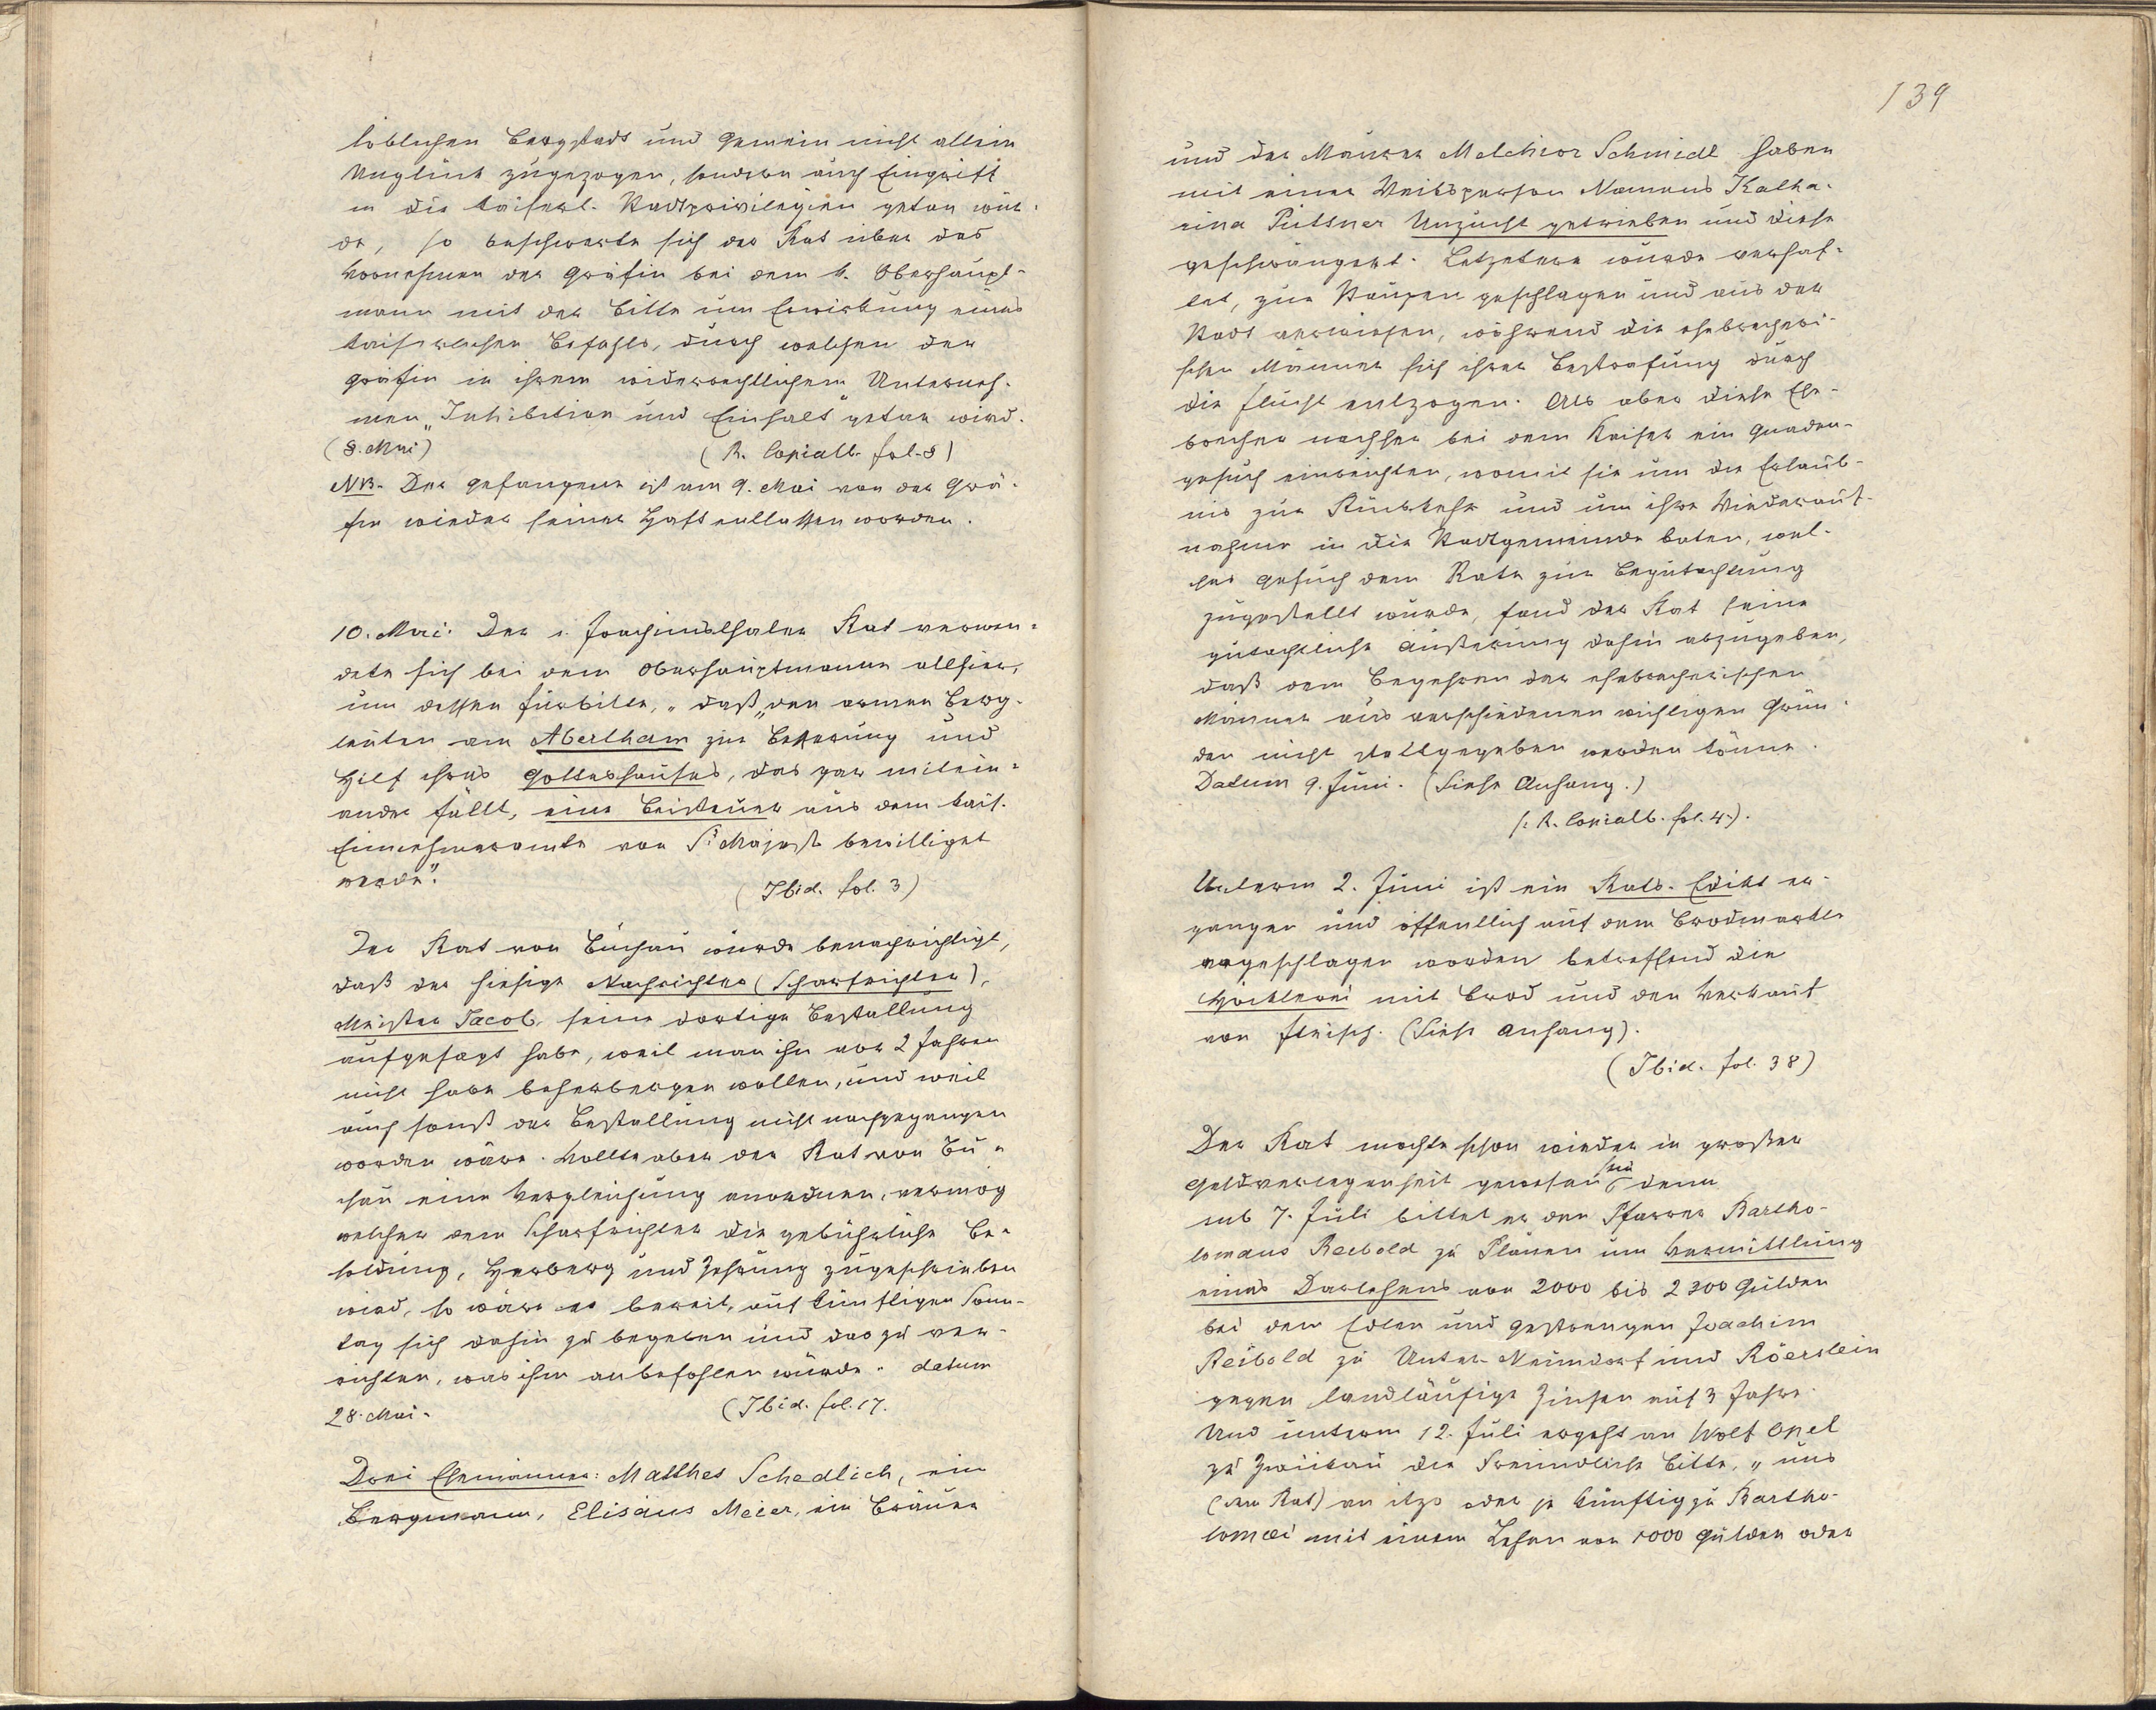 löblichen Bergstadt und Gemein nicht allein
Unglück zugezogen, sondern auch Eingriff
in die kaiserl. Stadtprivilegien getan wür-
de, so beschwerte sich der Rat über das
Vornehmen der Gräfin bei dem k. Oberhaupt-
mann mit der Bitte um Erwirkung eines
kaiserlichen Befehls, durch welchen der
Gräfin in ihrem widerrechtlichem Unterneh-
men „Inhibition und Einhalt" getan wird.
(8. Mai) (R. Copialb. fol. 8)
NB. Der Gefangene ist am 9. Mai von der Grä-
fin wieder seiner Haft entlassen worden.
10. Mai: Der Joachimsthaler Rat verwen-
dete sich bei dem Oberhauptmanne allhier,
um dessen Fürbitte, „daß den armen Berg-
leuten am Abertham zur Besserung und
Hilf ihres Gotteshauses, das gar mitein-
ander fällt, eine Beisteuer aus dem kais.
Einnehmeramte von Sr Majest. bewilliget
werde".
(Ibid. fol. 3)
Der Rat von Buchau wurde benachrichtigt,
daß der hiesige Nachrichter (Scharfrichter),
Meister Jacob, seine dortige Bestallung
aufgesagt habe, weil man ihn vor 2 Jahren
nicht habe beherbergen wollen, und weil
auch sonst der Bestallung nicht nachgegangen
worden wäre. Wollte aber der Rat von Bu-
chau eine Vergleichung anordnen, vermög
welcher dem Scharfrichter die gebührliche Be-
soldung, Herberg und Zehrung zugeschrieben
wird, so wäre er bereit, auf künftigen Sonn-
tag sich dahin zu begeben und das zu ver-
richten, was ihm anbefohlen würde. datum
28. Mai. (Ibid. fol. 17.
Drei Ehemänner: Matthes Schedlich, ein
Bergmann, Elisäus Meier, ein Bräuer
139
und der Maurer Melchior Schmidl haben
mit einer Weibsperson Namens Katha-
rina Püttner Unzucht getrieben und diese
geschwängert. Letztere wurde verhaf-
tet, zur Staupen geschlagen und aus der
Stadt verwiesen, während die ehebrecheri-
schen Männer sich ihrer Bestrafung durch
die Flucht entzogen. Als aber diese Ehe-
brecher nachher bei dem Kaiser ein Gnaden-
gesuch einreichten, womit sie um die Erlaub-
nis zur Rückkehr und um ihre Wiederauf-
nahme in die Stadtgemeinde baten, wel-
ches Gesuch dem Rate zur Begutachtung
zugestellt wurde, fand der Rat seine
gutachtliche Äußerung dahin abzugeben,
daß dem Begehren der ehebrecherischen
Männer aus verschiedenen wichtigen Grün-
den nicht stattgegeben werden könne.
Datum 9. Juni. (Siehe Anhang.)
(: R. Copialb. fol. 4.).
Unterm 2. Juni ist ein Rats-Edikt er-
gangen und öffentlich auf dem Brodmarkte
angeschlagen worden betreffend die
Höcklerei mit Brod und den Verkauf
von Fleisch. (Siehe Anhang).
(Ibid. fol. 38)
Der Rat mochte schon wieder in großer
Geldverlegenheit gewesen sein, denn
sub 7. Juli bittet er den Pfarrer Bartho-
lomäus Reibold zu Plauen um Vermittlung
eines Darlehens von 2000 bis 2300 Gulden
bei dem Edlen und Gestrengen Joachim
Reibold zu Unter-Neundorf und Röerslein
gegen landläufige Zinsen auf 3 Jahre.
Und unterm 12. Juli ergeht an Wolf Opel
zu Zwickau die freundliche Bitte, „uns
(den Rat) an itzo oder je künftig zu Bartho-
lomæi mit einem Lehen von 1000 Gulden oder